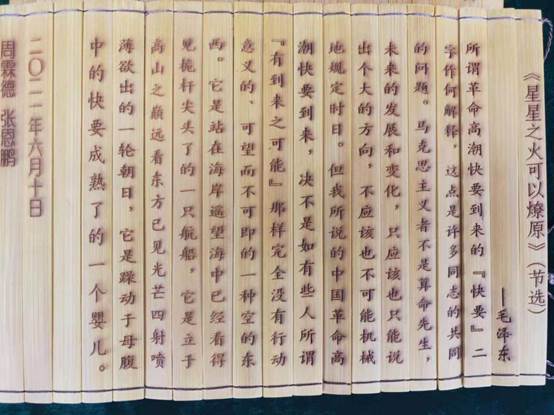 《星星之火可以燎原》（节选）
——毛泽东
所谓革命高潮快要到来的『快要』二
字作何解释，这点是许多同志的共同
的问题。马克思主义者不是算命先生，
未来的发展和变化，只应该也只能说
出个大的方向，不应该也不可能机械
地规定时日。但我所说的中国革命高
潮快要到来，决不是如有些人所谓
『有到来之可能』那样完全没有行动
意义的、可望而不可即的一种空的东
西。它是站在海岸遥望海中已经看得
见桅杆尖头了的一只航船，它是立于
高山之巅远看东方已见光芒四射喷
薄欲出的一轮朝日，它是躁动于母腹
中的快要成熟了的一个婴儿。
二〇二一年六月十日
周霖德 张恩鹏